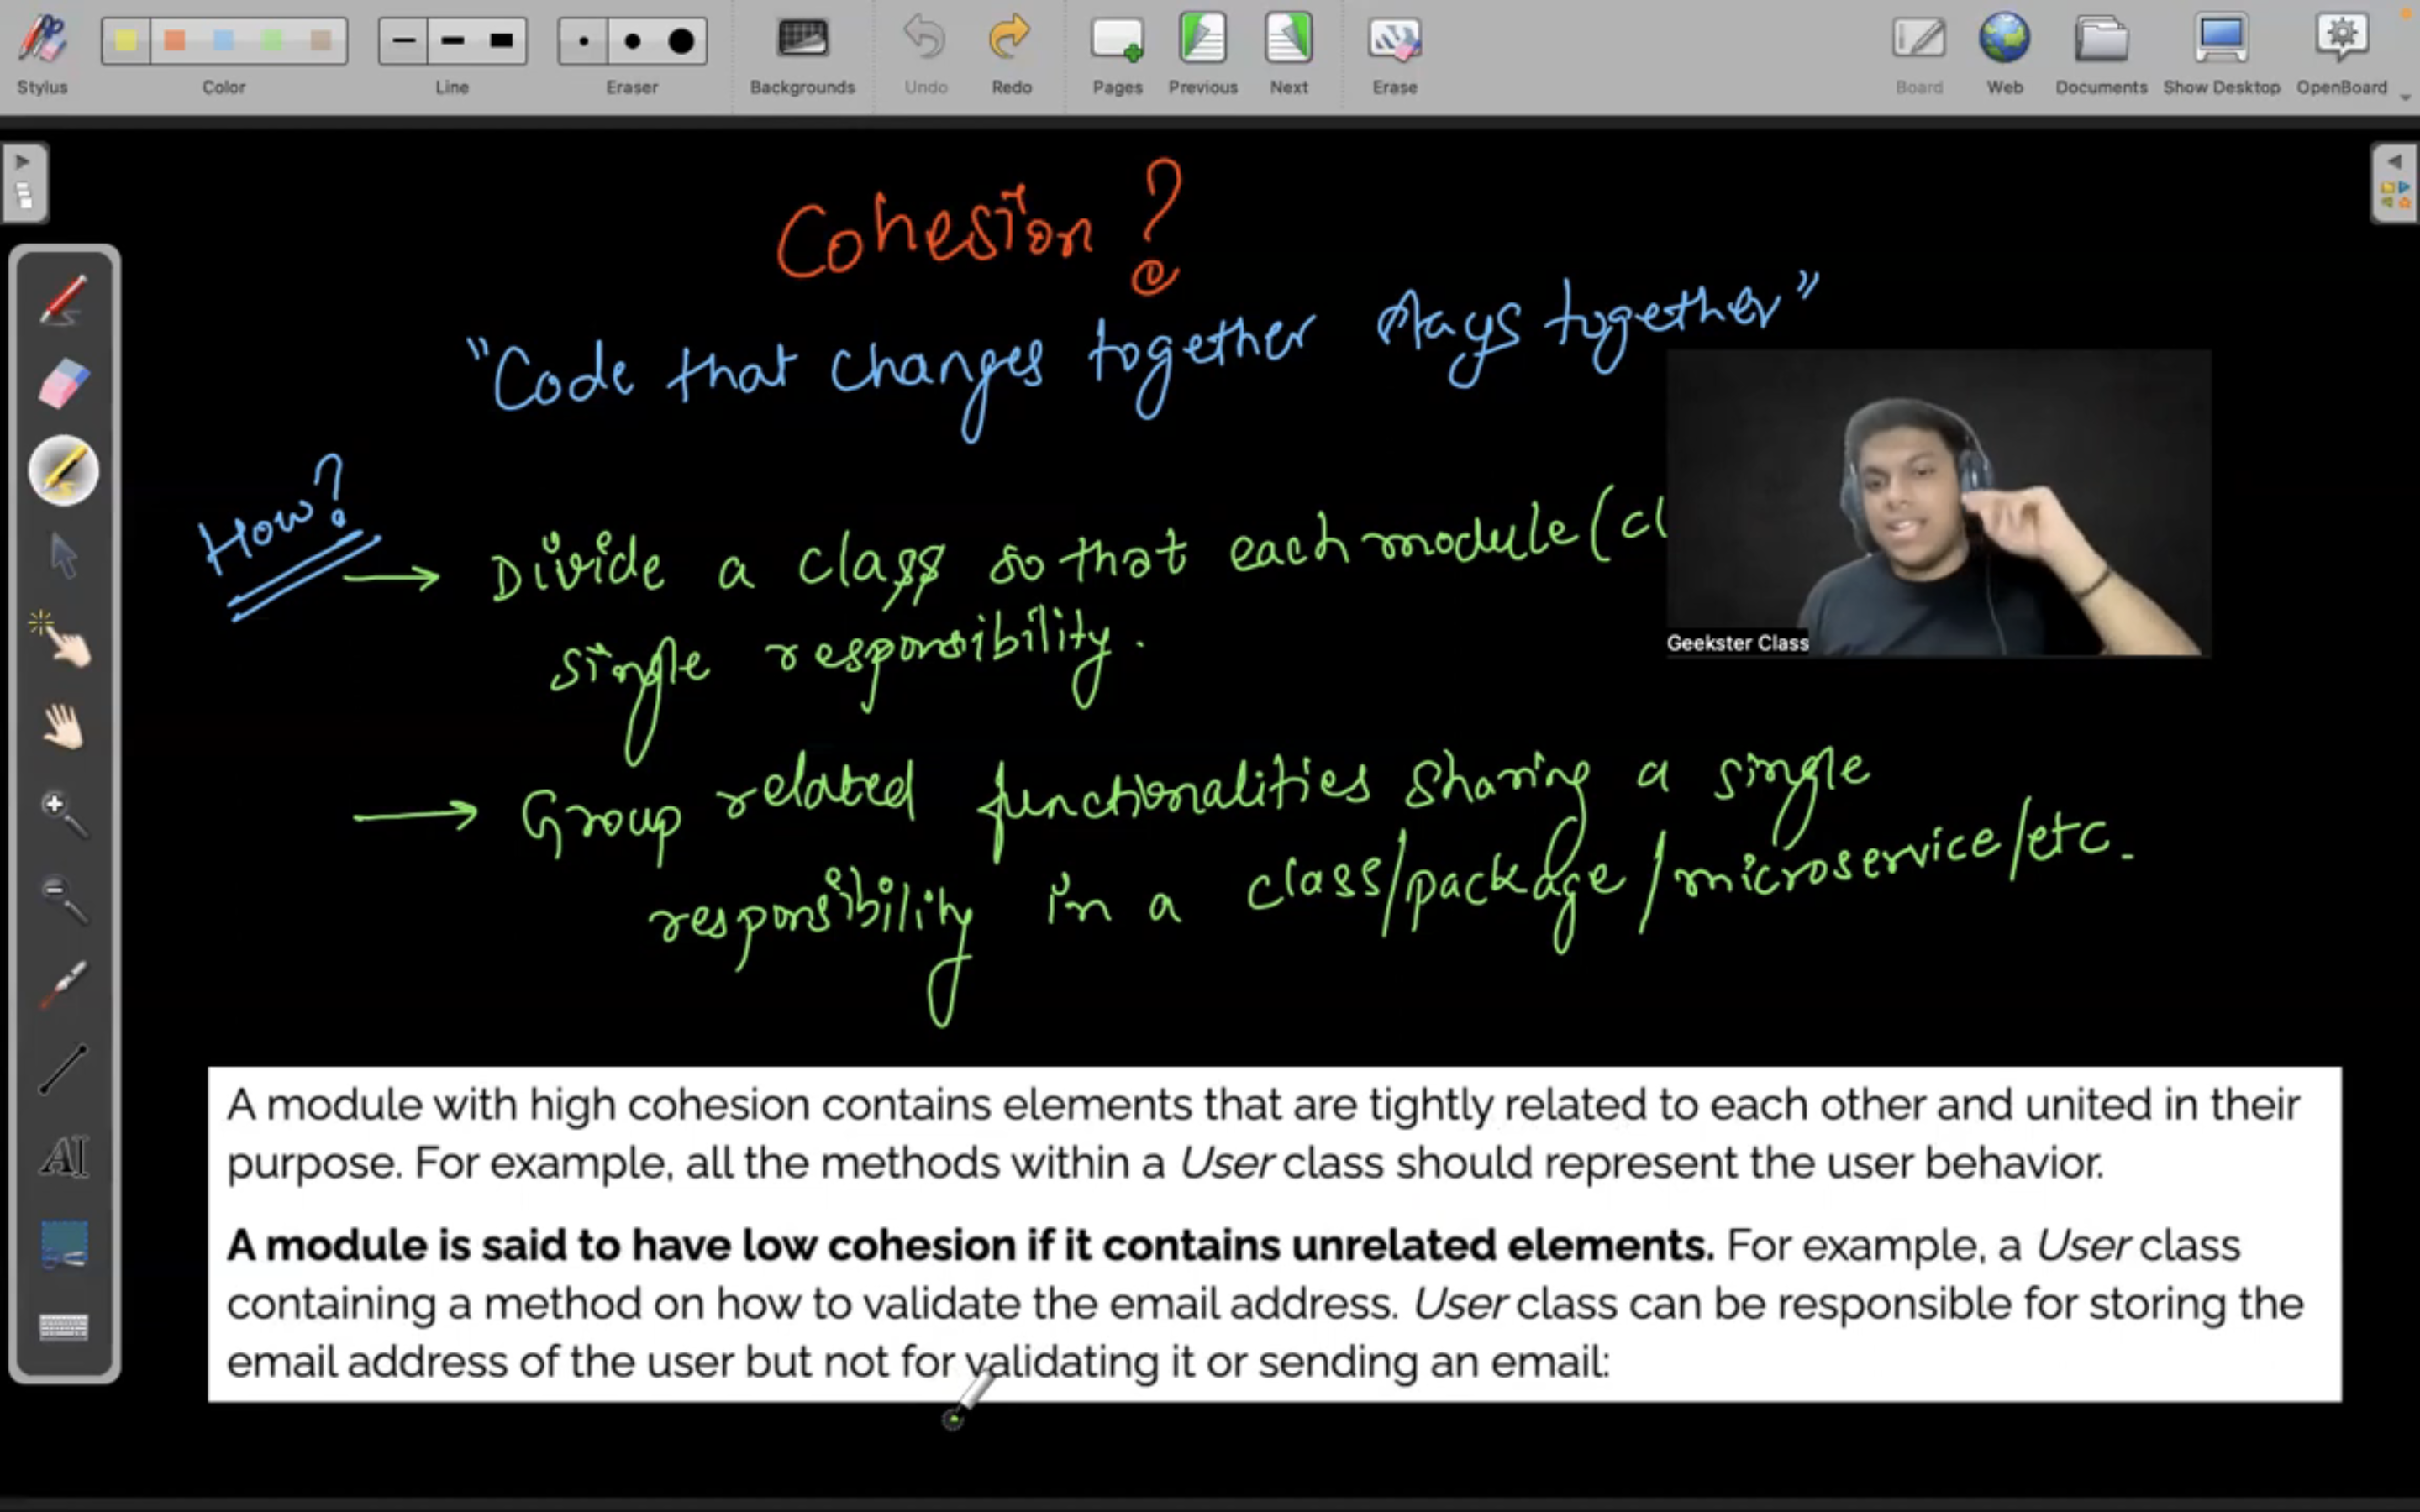 Stylus
Color
Line
Eraser
Backgrounds
Undo
Redo
Pages
Previous
Next
Erase
Board
Web
Documents
Show Desktop
OpenBoard
Cohesion ?
"Code that changes together stays together"
How?
→ Divide a class so that each module (cl
single responsibility.
Geekster Class
→ Group related functionalities sharing a single
responsibility in a class/package/microservice/etc.
A module with high cohesion contains elements that are tightly related to each other and united in their
purpose. For example, all the methods within a User class should represent the user behavior.
A module is said to have low cohesion if it contains unrelated elements. For example, a User class
containing a method on how to validate the email address. User class can be responsible for storing the
email address of the user but not for validating it or sending an email:
AI